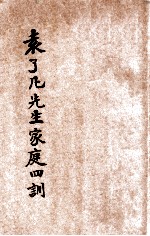 袁了凡先生家庭四訓